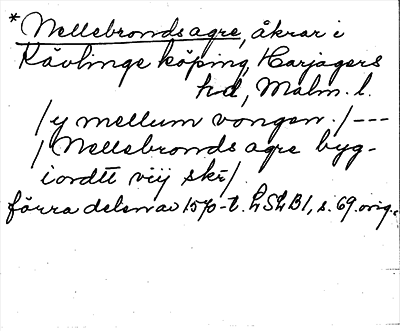 *Nellebrondsagre, åkrar i
Kävlinge köping, Harjagers
hd, Malm. l.
/ y mellum vongen. / ---
/ Nellebronds agre byg-
iordtt viij skr /
förra delen av 1570-t. LSLB1, s. 69. orig.